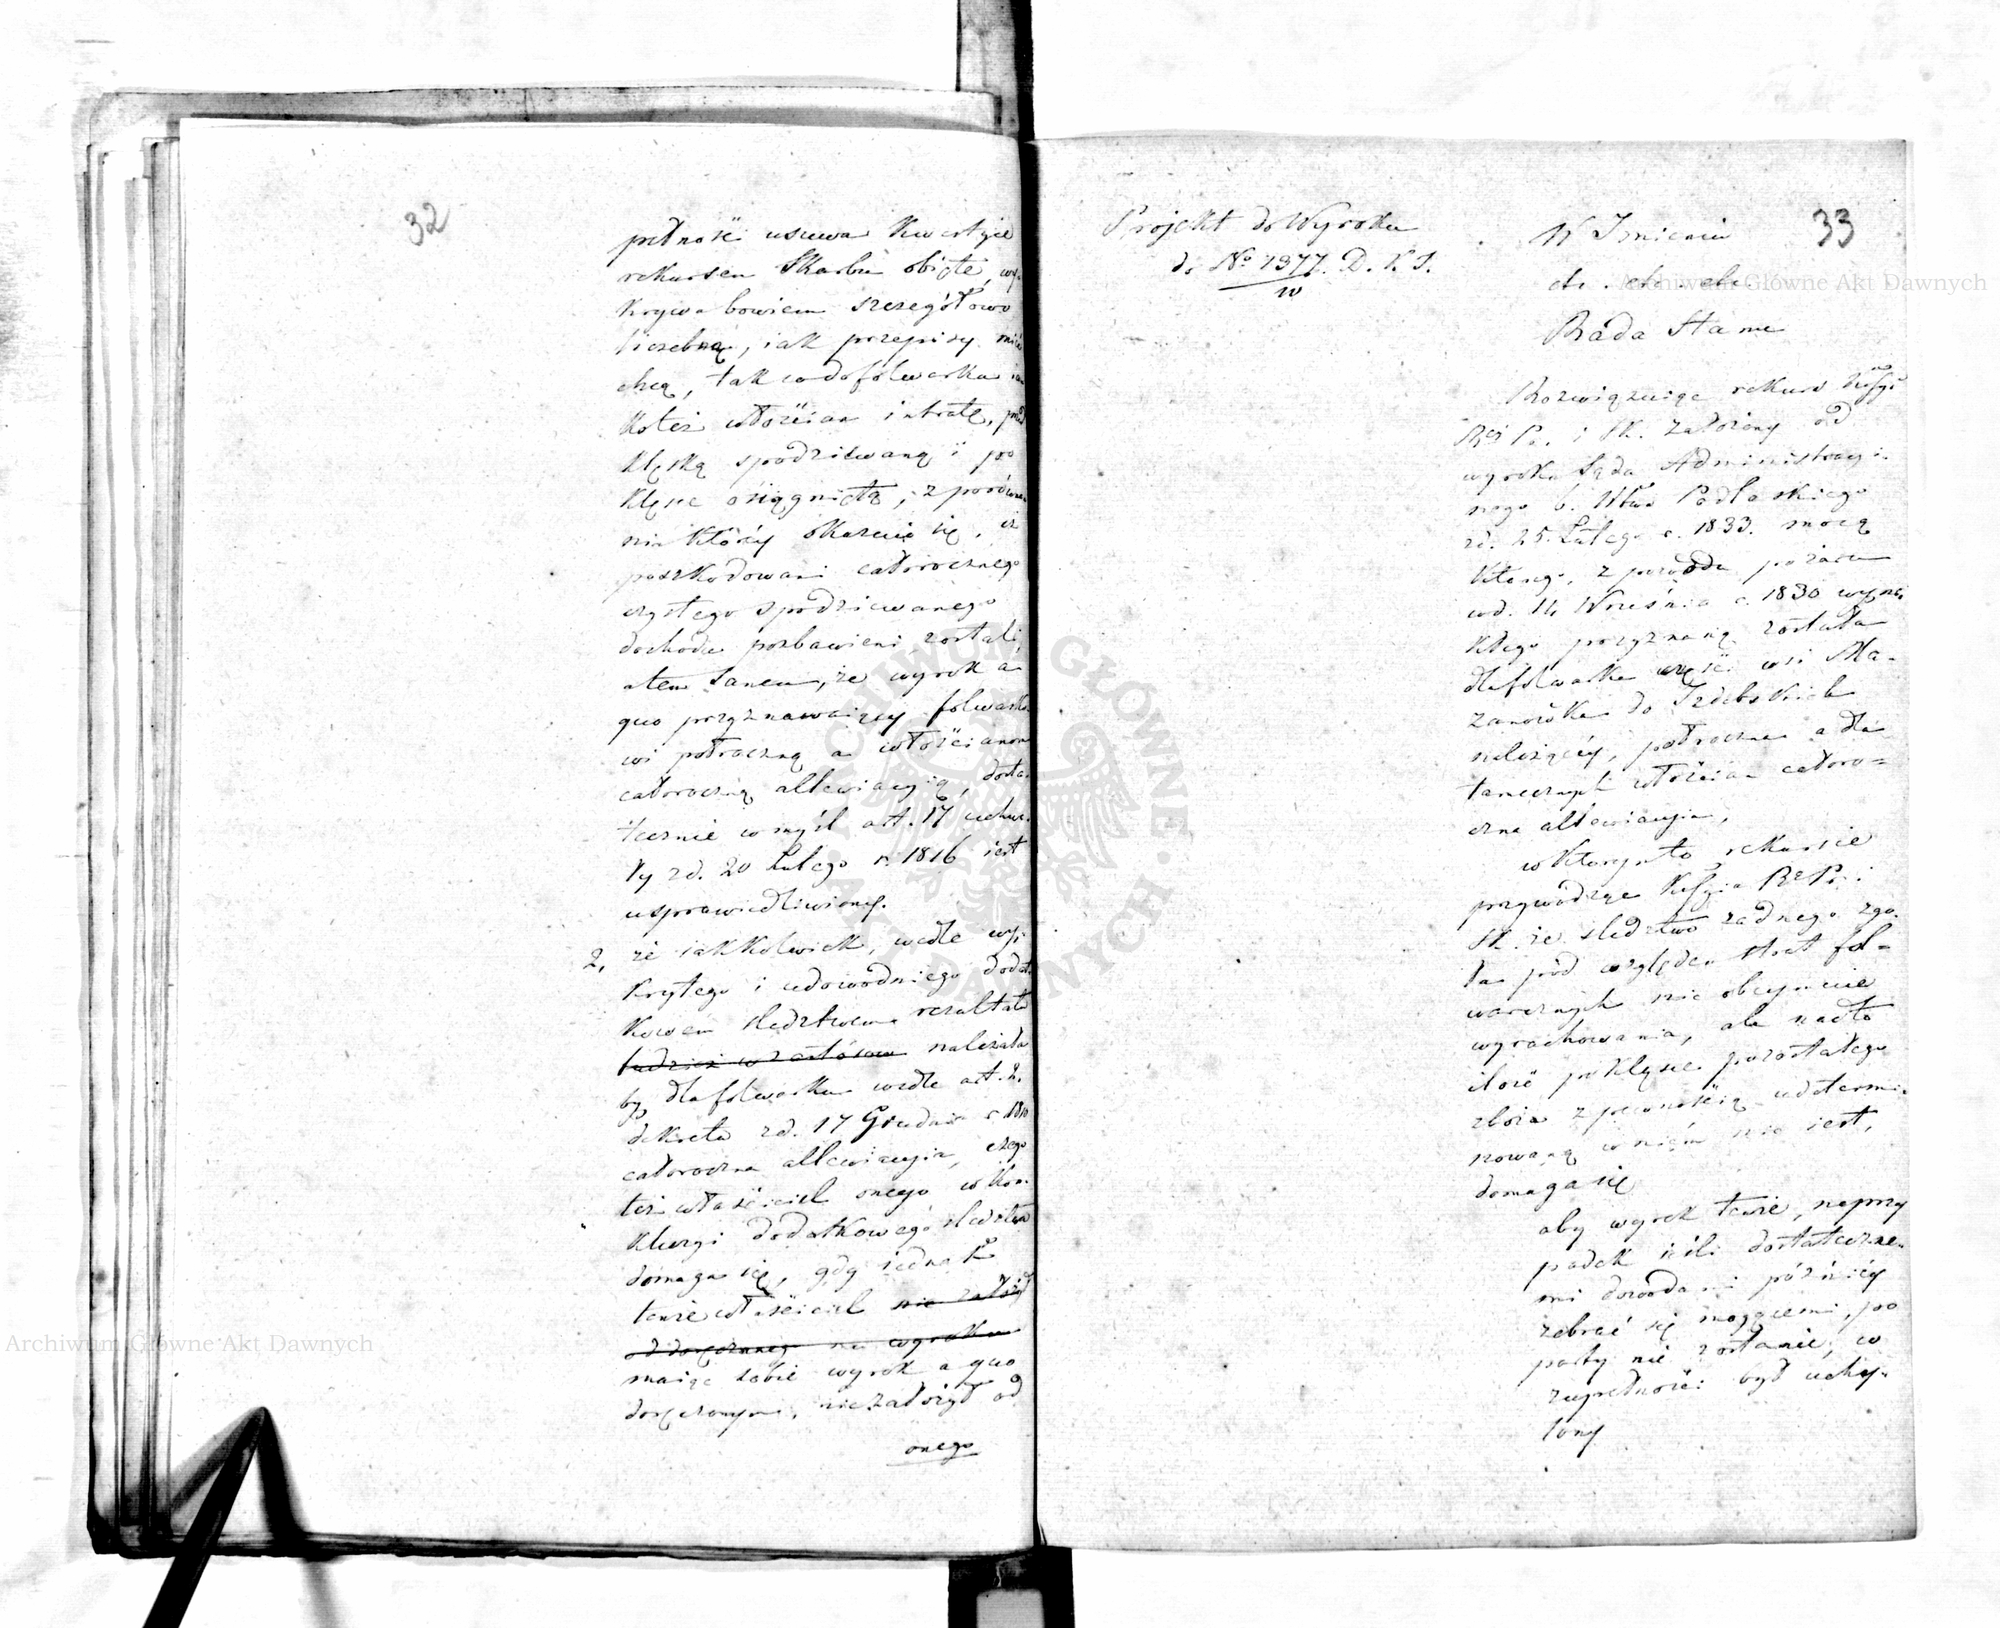 32
pełności usuwa kwestyie
rekursem Skarbu obięte, wy-
krywa bowiem szczegółowo
liczebną, iak przepisy mieć
chcą, tak co do folwarku ia
koteż włościan intratę, przed
klęską spodziewaną i po
klęsce osiągniętą, z porówna
nia którey okazuie się, iż
poszkodowani całorocznego
czystego spodziewanego
dochodu pozbawieni zostali,
a tem samem, że wyrok a
quo przyznawaiący folwarko
wi półroczną a włościanom
całoroczną allewiacyią, dosta-
tecznie w myśl art. 17 uchwa-
ły z d. 20 Lutego r. 1816 iest
usprawiedliwiony.
2, że iakkolwiek, wedle wy-
krytego i udowodniego dodat
kowem śledztwem rezultatu
należała
by dla folwarku wedle art. 2.
dekretu z d. 17 Grudnia r. 1810
całoroczna allewiacyia, czego
też właściciel onego w kon-
kluzyi dodatkowego śledztwa
domaga się, gdy iednak
tenże właściciel nie założył
od doręczonego mu wyroku
maiąc sobie wyrok a quo
doręczonym, nie założył od
onego
Projekt do Wyroku
do No 1377. D. K. S.
w
33
W Imieniu
etc. etc. etc.
Rada Stanu
Rozwiązuiąc rekurs Kommissyi
Rej Pr. i Sk. założony od
wyroku Sądu Administracyi-
nego b. Wtwa Podlaskiego
z d. 25. Lutego r. 1833. mocą
którego, z powodu pożaru
w d. 14 Września r. 1830 wyni-
kłego przyznaną została
dla folwarku części wsi Ma-
zanówka do Izdebskich
należącéy, półroczna a dla
tamecznych włościan całoro-
czna allewiacyia,
w którym to rekursie
przywodząc Kssyia R. P. i
Sk. że śledztwo żadnego zgo-
ła pod względem strat fol-
warcznych nie obeymuie
wyrachowania, ale nadto
ilość po klęsce pozostałego
zboża z pewnością udetermi-
nowaną w niem nie iest,
domaga się
aby wyrok tenże, na przy
padek ieśli dostateczne-
mi dowodami późniey
zebrać się mogącemi, po
party nie zostanie, w
zupełności był uchy-
lony
Archiwum Główne Akt Dawnych
Archiwum Główne Akt Dawnych
ARCHIWUM GŁÓWNE AKT DAWNYCH